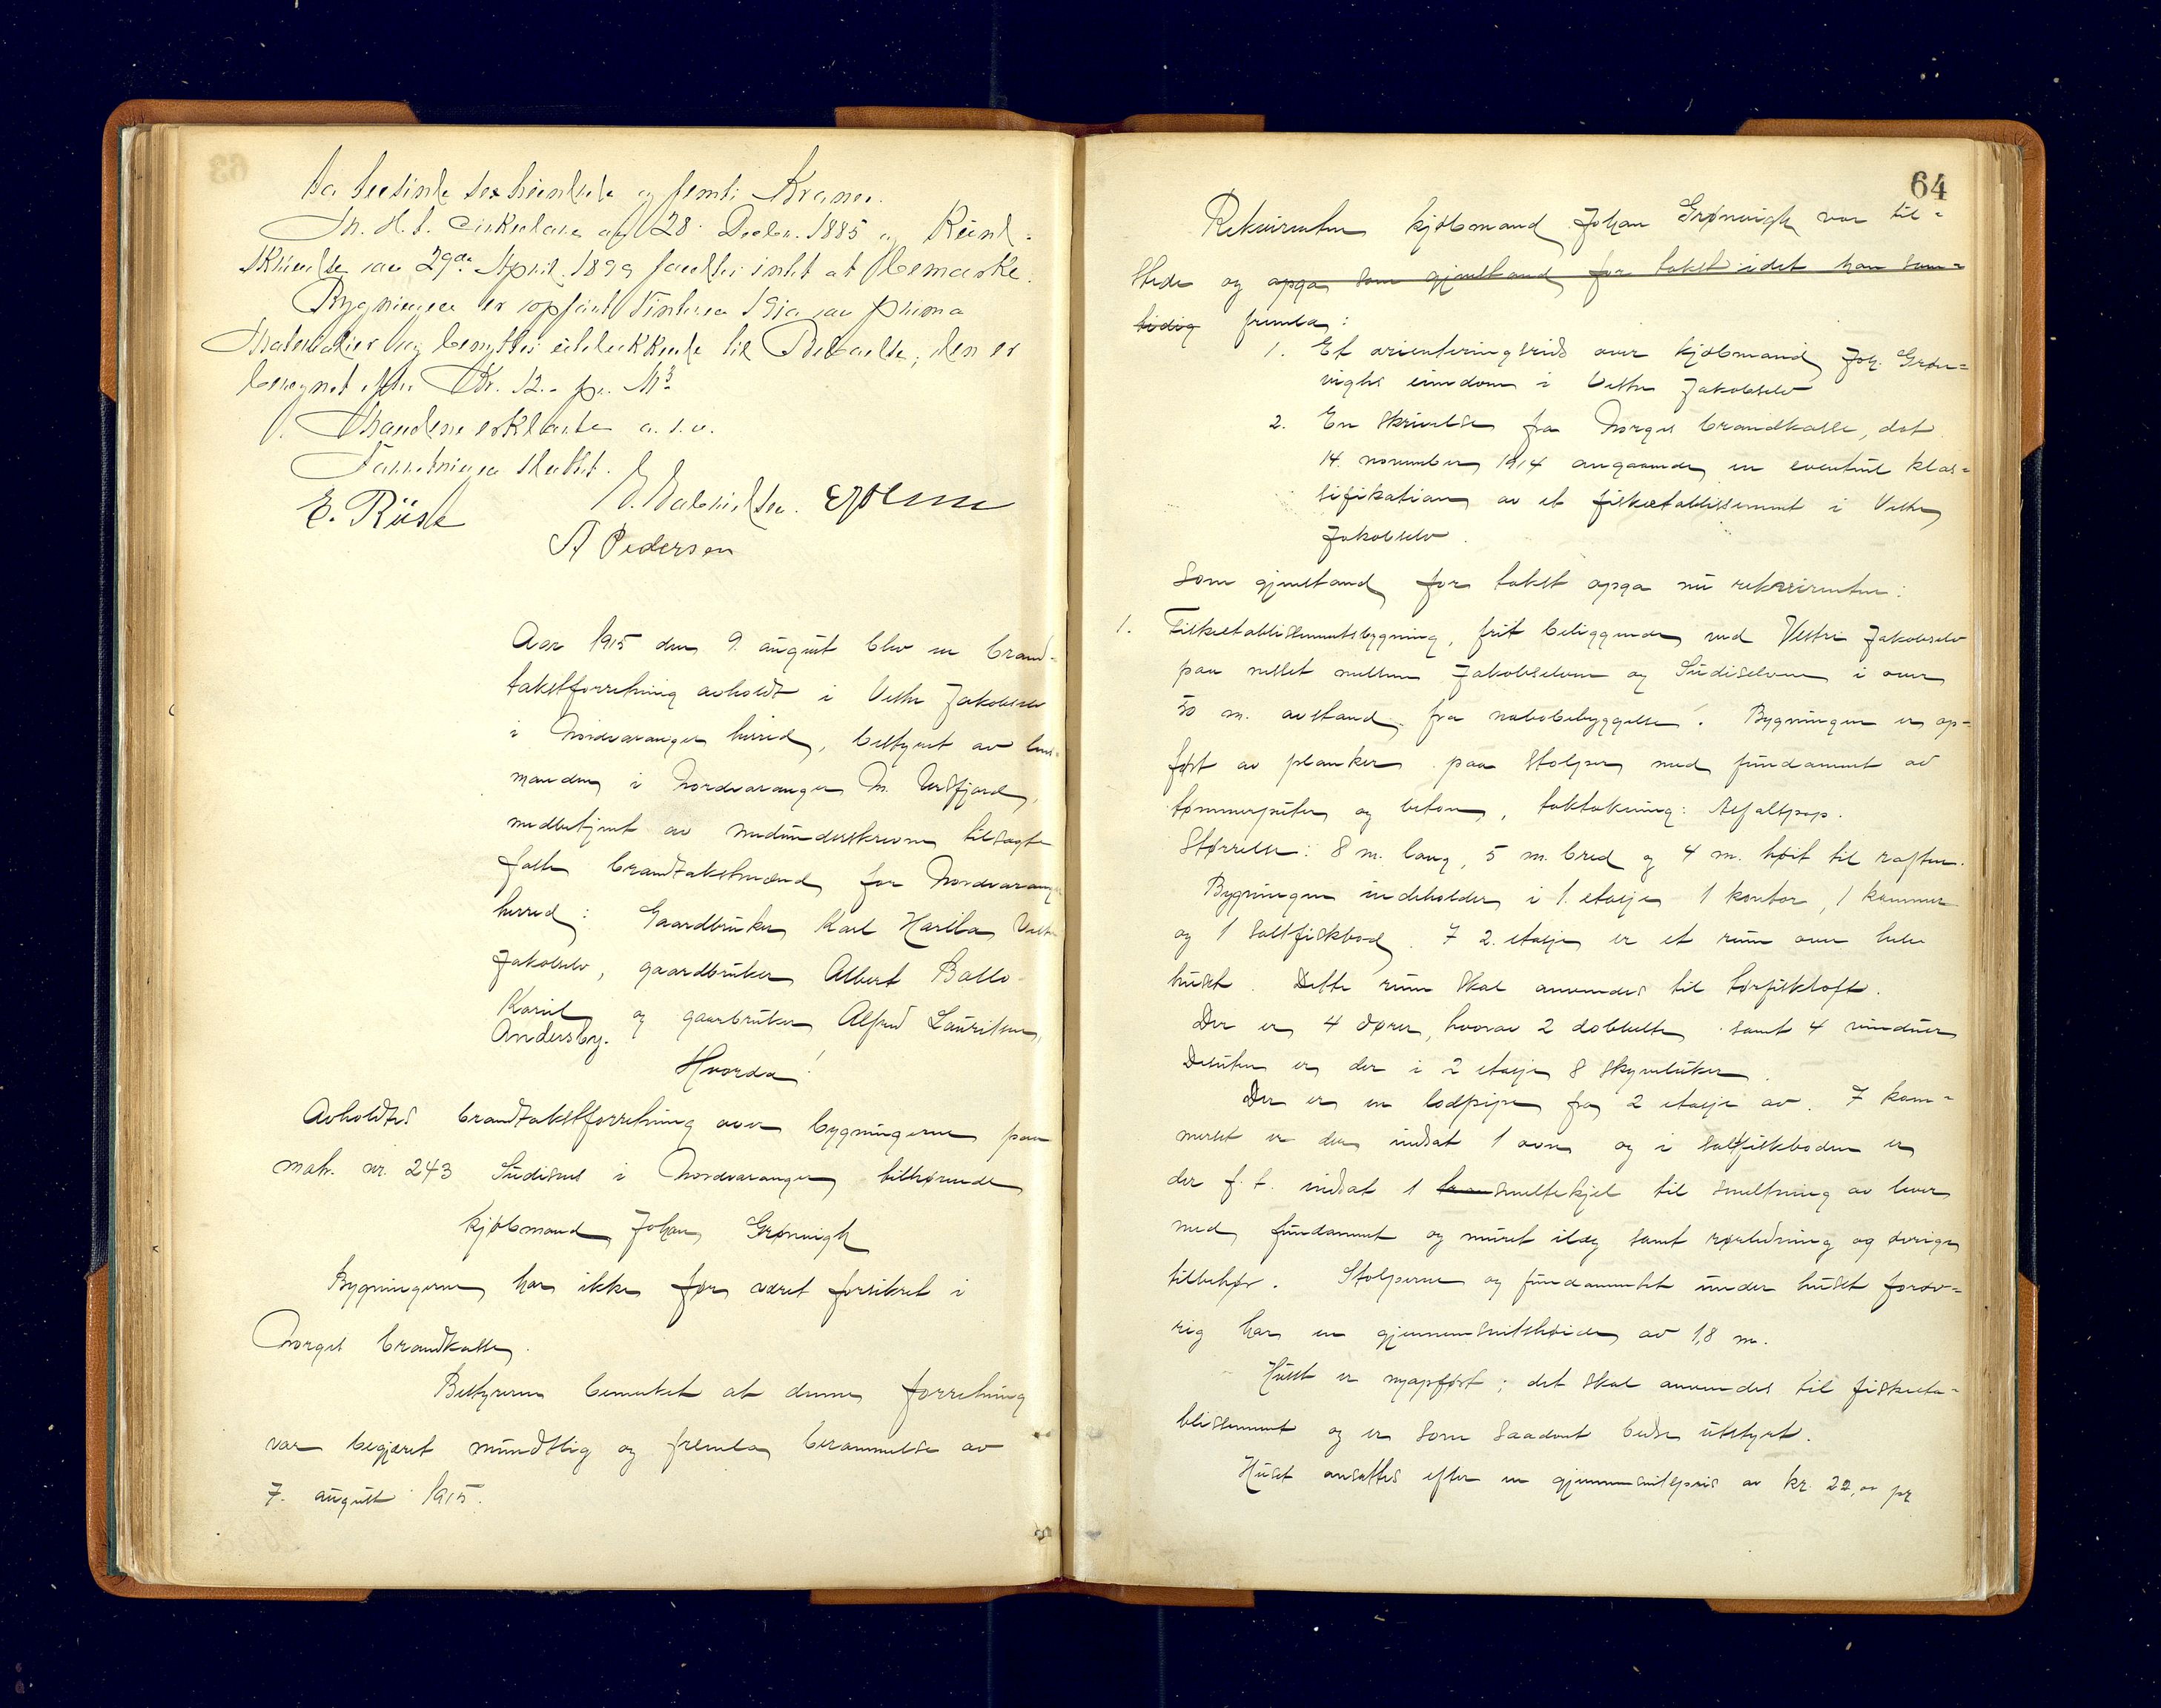 63
sex hundrede og femti Kroner.
M. H. t. Cirkulære af 28. Decbr. 1885 og Rund-
skrivelse av 29de April 1899 fandtes intet at bemærke.
Bygningen er opført Vinteren 1912 av prima
Materialier og benyttes udelukkende til Beboelse; den er
beregnet efter Kr. 12.- pr. M³
Mændene erklærte a. s. v.
Forretningen sluttet.
E. Rüsk
A Pedersen
Aar 1915 den 9. august blev en brand-
takstforretning avholdt i Vestre Jakobselv
i Nordvaranger herred, bestyret av lens-
manden i Nordvaranger M. Versfjord,
medbetjent av medunderskrevne tilsagte
faste brandtakstmænd for Nordvaranger
herred: Gaardbruker Karl Harila Vestre
Jakobselv, gaardbruker Albert Ballo
Kariel og gaarbruker Alfred Lauritsen,
Andersby.
Hvorda!
Avholdtes brandtakstforretning over bygningerne paa
matr. nr. 243 Sudisnes i Nordvaranger tilhørende
kjøbmand Johan Grønvigh
Bygningerne har ikke før været forsikret i
Norges brandkasse.
Bestyreren bemerket at denne forretning
var begjæret mundtlig og fremla berammelse av
7. august 1915.
64
Rekvirenten kjøbmand Johan Grønvigh var til=
stede og opga som gjenstand for takst idet han sam=
tidig fremla:
1. Et orienteringsrids over kjøbmand Joh. Grøn=
vighs eiendom i Vestre Jakobselv
2. En skrivelse fra Norges brandkasse, dat.
14. november 1914 angaaende en eventuel klas=
sifikation av et fisketablissement i Vestre
Jakobselv.
Som gjenstand for takst opga nu rekvirenten:
1. Fisketablissementsbygning, frit beliggende ved Vestre Jakobselv
paa nesset mellem Jakobselven og Sudiselven i over
50 m. avstand fra nabobebyggelse. Bygningen er op=
ført av planker paa stolper med fundament av
tømmerputer og beton, taktækning: Asfaltpap.
Størrelse: 8 m. lang, 5 m. bred og 4 m. høit til raften.
Bygningen indeholder i 1. etasje 1 kontor, 1 kammer
og 1 saltfiskbod. I 2. etasje er et rum over hele
huset. Dette rum skal anvendes til tørfiskloft.
Der er 4 dører, hvorav 2 dobbelte samt 4 vinduer
Desuten er der i 2 etasje 8 skyveluker.
Der er en lodpipe fra 2 etasje av. I kam=
merset er der indsat 1 ovn og i saltfiskboden er
der f. t. indsat 1 tran smeltekjel til smeltning av lever
med fundament og muret ildsg samt rørledning og øvrige
tilbehør. Stolperne og fundamentet under huset forøv=
rig har en gjennemsnitshøide av 1,8 m.
Huset er nyopført; det skal anvendes til fisketa=
blissement og er som saadant bedre utstyrt.
Huset ansættes efter en gjennemsnitspris av kr. 22,00 pr